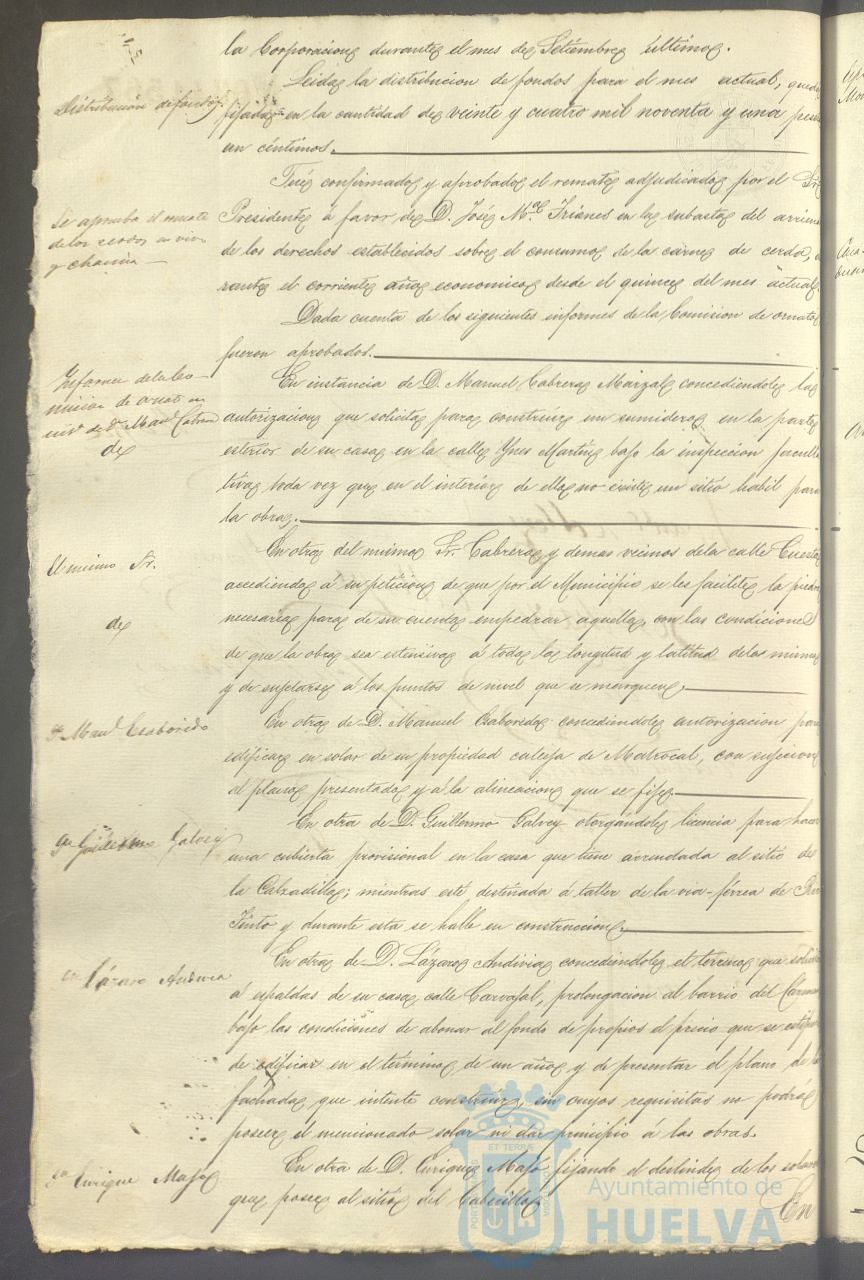 la Corporacion durante el mes de Setiembre último.
Leida la distribucion de fondos para el mes actual, queda
Distribucion de fondos.
fijada en la cantidad de veinte y cuatro mil noventa y una pese
un céntimos.
Fué confirmado y aprobado el remate adjudicado por el Sr.
Se aprueba el remate
de los cerdos en vivo
y chacina
Presidente á favor de D. José M.ª Trianes en la subasta del arrien
de los derechos establecidos sobre el consumo de la carne de cerda,
rante el corriente año economico desde el quince del mes actual.
Dada cuenta de los siguientes informes de la Comision de ornato
fueron aprobados.
Informe de la Co-
mision de ornato en
de D. Man.l Cabrera
de
En instancia de D. Manuel Cabrera Márzal concediendole la
autorizacion que solicita para construir un sumidero en la parte
esterior de su casa en la calle Ynes Martin bajo la inspeccion facult
tiva, toda vez que en el interior de ella no existe un sitio habil para
la obra.
El mismo Sr.
de
En otra del mismo Sr. Cabrera y demas vecinos de la calle Cuesta
accediendo á su peticion de que por el Municipio se les facilite la piedra
necesaria para de su cuenta empedrar aquella, con las condiciones
de que la obra sea estensiva á toda la longitud y latitud de la misma
y de sujetarse á los puntos de nivel que se marquen.
D. Man.l
En otra de D. Manuel concediendole autorizacion para
edificar en solar de su propiedad calleja de Madrocal, con sujecion
al plano presentado y á la alineacion que se fije.
Guillermo Galvey
En otra de D. Guillermo Galvey otorgándole licencia para hacer
una cubierta provisional en la casa que tiene arrendada al sitio de
la Calzadilla; mientras esté destinada á taller de la via-férrea de Rio
Tinto y durante esta se halle en construccion.
Lázaro Andivia
En otra de D. Lázaro Andivia concediendole el terreno que solicita
á espaldas de su casa calle Carvajal, prolongacion al barrio del Carmen
bajo las condiciones de abonar al fondo de propios el precio que se estipule
de edificar en el término de un año y de presentar el plano de la
fachada que intente construir, sin cuyos requisitos no podrá
poseer el mencionado solar ni dar principio á las obras.
Enrique Majo
En otra de D. Enrique Majo fijando el deslinde de los solares
que posee al sitio del Cabecillo.
En
Ayuntamiento de
HUELVA